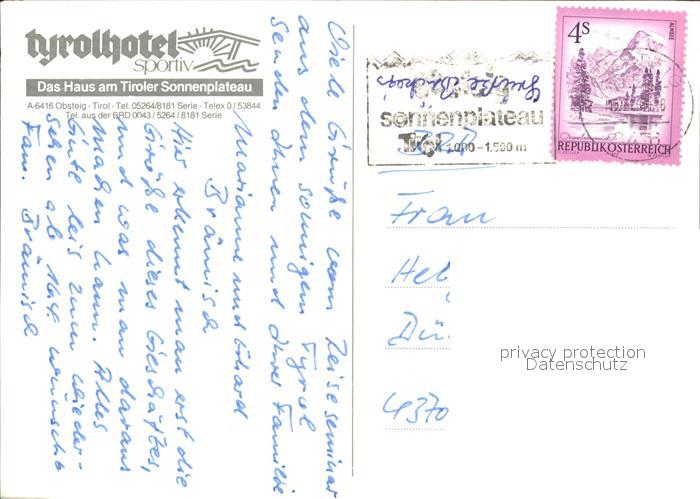 tyrolhotel
sportiv
Das Haus am Tiroler Sonnenplateau
A-6416 Obsteig · Tirol · Tel. 05264/8181 Serie - Telex 0 / 53844
Tel. aus der BRD 0043 / 5264 / 8181 Serie
Viele Grüße vom Reiseseminar
aus dem sonnigen Tyrol
senden Ihnen und Ihrer Familie
Marianne und Eckard
Bräunisch
Hier erkennt man erst die
Größe dieses Geschäftes,
und was man daraus
machen kann. Alles
Gute bis zum Wieder-
sehen ab 16.4. wünscht
Fam. Bräunisch
sonnenplateau
Tirol 1.000 – 1.500 m
4 S
ALMSEE
REPUBLIK ÖSTERREICH
BRD
Frau
Hel
Dü
4370
privacy protection
Datenschutz